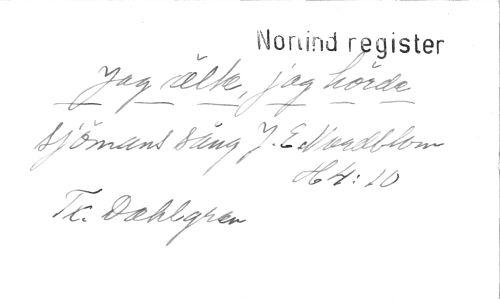 Norlind register
Jag älk, jag hörde
sjömans sång J. E. Nordblom
H 4:10
Tx. Dahlgren